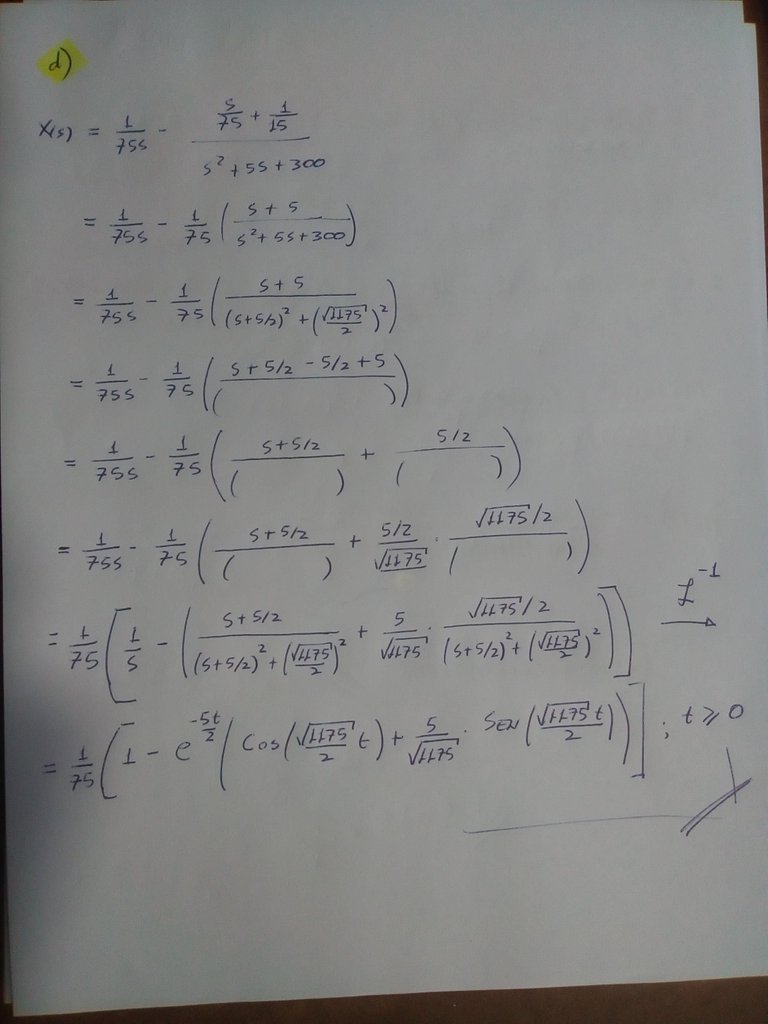 d)
X(s) = 1/75s - (s/75 + 1/15)/(s² + 5s + 300)
= 1/75s - 1/75 ((s + 5)/(s² + 5s + 300))
= 1/75s - 1/75 ((s + 5)/((s+5/2)² + (√1175/2)²))
= 1/75s - 1/75 ((s + 5/2 - 5/2 + 5)/( ))
= 1/75s - 1/75 ((s + 5/2)/( ) + (5/2)/( ))
= 1/75s - 1/75 ((s + 5/2)/( ) + (5/2)/√1175 · (√1175/2)/( ))
= 1/75 [1/s - ((s + 5/2)/((s+5/2)² + (√1175/2)²) + 5/√1175 · (√1175/2)/((s+5/2)² + (√1175/2)²))] ℒ⁻¹ →
= 1/75 [1 - e^(-5t/2) (cos(√1175/2 t) + 5/√1175 · SEN(√1175 t/2))] ; t ≥ 0